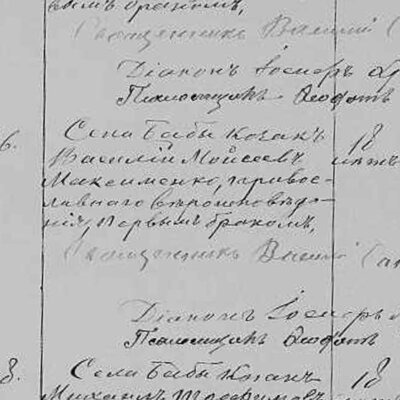 вымъ бракомъ,
Священникъ Василій
Діаконъ Іосифъ
Псаломщикъ Ѳеофанъ
6. Села Бабы козакъ 18
Василій Мойсеевъ лѣтъ
Максименко, правос-
лавного вѣроисповѣда-
нія, первымъ бракомъ,
Священникъ Василій
Діаконъ Іосифъ
Псаломщикъ Ѳеофанъ
8. Села Бабы козакъ 18
Михаилъ Трофимовъ